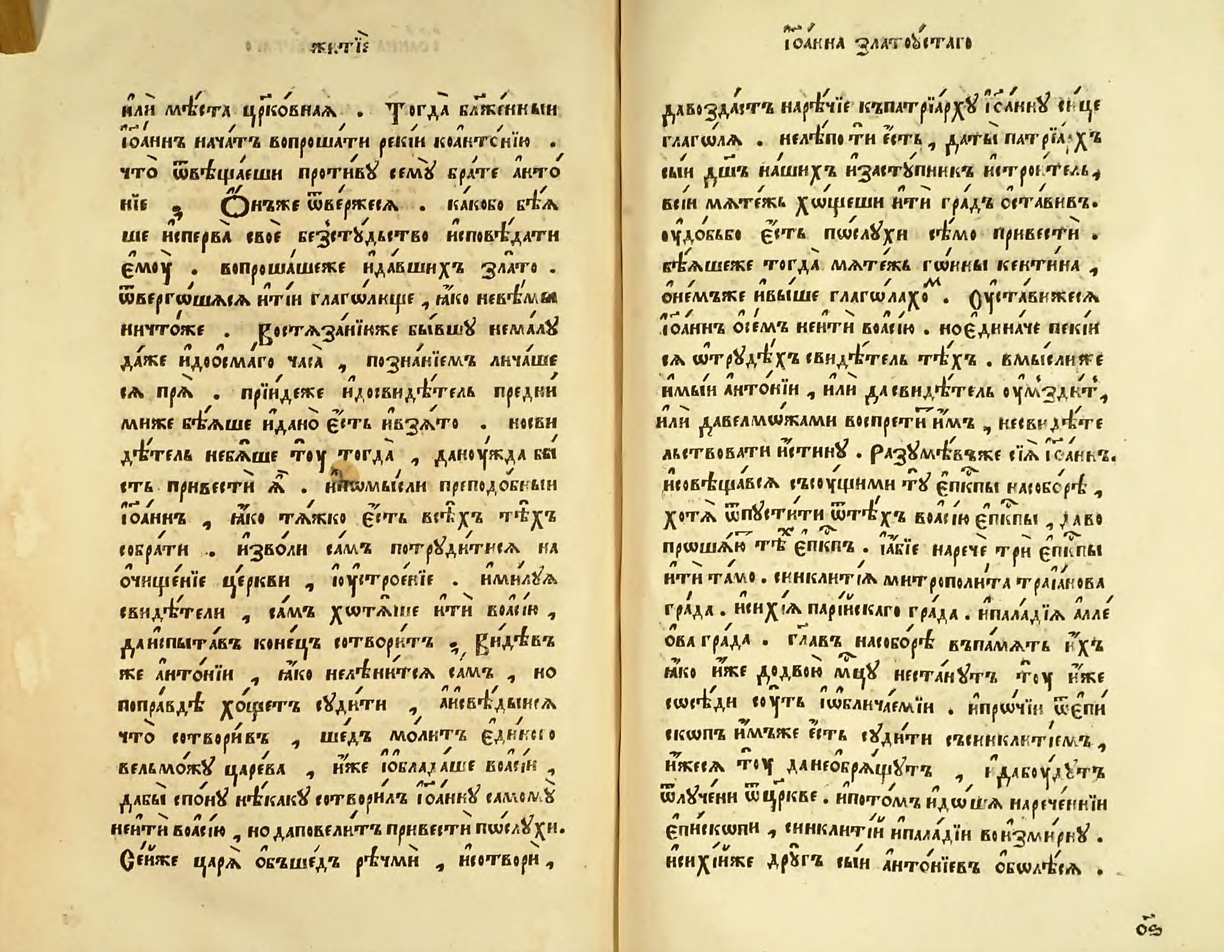 житїе
или́ мѣ́ста цр҃ко́внаѧ . Тогда̀ бл҃же́нныи
їѡ҃а́ннъ нача́тъ вопроша́ти ре́кїи ко́антѡнїю .
что̀ ѿвѣща́еши проти́вꙋ семꙋ̀ бра́те анто́
нїе , О҆нъже ѿве́ржесѧ . како́бо бѣ́ѧ
ше и҆спе́рва̀ своѐ безстꙋ́дьство и҆сповѣ́дати
е҆моу̀ . вопроша́шеже и҆дава́вшихъ зла́то .
ѿве́ргѡшасѧ и҆ті́и глаго́люще , ꙗ҆ко невѣ́мы
ничто́же . Востѧза́нїюже бы́вшꙋ нема́лꙋ
да́же и҆доосма́го часа̀ , позна́нїемъ лича́ше
сѧ прѧ̀ . прїи́деже и҆досвидѣ́тель предни́
миже бѣ́ѧше и҆дано̀ е҆́сть и҆взѧ́то . носви
дѣ́тель небѧ́ше тоу̀ тогда̀ , даноу́жда бы̀
сть привестѝ ѧ҆̀ . и҆помы́сли преподо́бныи
їѡ҃а́ннъ , ꙗ҆ко тѧ́жко е҆́сть всѣ́хъ тѣ́хъ
собра́ти . изво́ли са́мъ потрꙋди́тисѧ на
очище́нїе це́ркви , їоустрое́нїе . и҆ми́лꙋѧ
свидѣ́тели , са́мъ хотѧ́ше итѝ во́асїю ,
даи҆спыта́въ коне́цъ сотвори́тъ , Ви́дѣвъ
же анто́нїи , ꙗ҆ко нелѣни́тсѧ са́мъ , но
попра́вдѣ хо́щетъ сꙋди́ти , а҆исвѣ́дыисѧ
что̀ сотвори́въ , ше́дъ мо́литъ е҆ди́ного
вельмо́жꙋ ца́рева , и҆́же їоблада́ше во́асїи ,
дабы̀ спо́нꙋ нѣ́какꙋ сотвори́лъ їѡ҃а́ннꙋ самомꙋ̀
неитѝ во́асїю , но даповели́тъ привестѝ по́слꙋхи .
Се́иже царѧ̀ обьше́дъ рѣчмѝ , и҆сотворѝ ,
їѡ҃а́нна златоꙋ́стаго
давозда́стъ нарѣ́чїе къпатрїа́рхꙋ їѡ҃а́ннꙋ си́це
глаго́лѧ . нелѣ́по ти е҆́сть , даты̀ патрїа́рхъ
сы́и дш҃ъ на́шихъ и҆засту́пникъ и҆строи́тель ,
все́и мѧте́жь хо́щеши итѝ гра́дъ оста́вивъ .
оудо́бьбо е҆́сть по́слꙋхи сѣ́мо привестѝ .
бѣ́ѧшеже тогда̀ мѧте́жь го́ины кентина ,
оне́мъже и҆вы́ше глаго́лахоᷨ . Оу҆ста́вижесѧ
їѡ҃а́ннъ осе́мъ неитѝ во́асїю . ное҆дина́че пекі́и
сѧ ѡтрꙋ́дѣхъ свидѣ́тель тѣ́хъ . вмы́слиже
и҆мы́и анто́нїи , или́ дасвидѣ́тель оумздитъ̀ ,
или́ давелмо́жами воспрети́тъ и҆мъ , несвидѣ́те
льствовати и҆́стинꙋ . Разꙋмѣ́въже сїѧ̀ їѡ҃а́ннъ .
и҆совѣща́всѧ съсоу́щими тꙋ̀ е҆пⷭ҇кпы насобо́рѣ ,
хотѧ̀ ѿпꙋсти́ти ѿтѣ́хъ во́асїю е҆пⷭ҇кпы , да́во
прошаю́ тѣⷯ е҆пⷭ҇кпъ . їа́бїе наречѐ трѝ е҆пⷭ҇кпы
итѝ та́мо . синкли́тїѧ митрополи́та траїа́нова
гра́да . и҆сихі́ѧ парі́йскаго гра́да . и҆палада́їѧ алле́
ова гра́да . гла́въ насобо́рѣ въпа́мѧть и҆́хъ
ꙗ҆ко и҆́же додвою̀ мц҃ꙋ неста́нꙋтъ тоу̀ и҆́же
сосѣ́ди со́уть їѡблича́емїи . и҆про́чїи ѿе҆пи́
скопъ и҆́мъже е҆́сть сꙋди́ти съсинкли́тїемъ ,
и҆́жесѧ тоу̀ данеобрѧ́щꙋтъ , и҆дабоу́дꙋтъ
ѿлꙋ́чени ѿцр҃кве . и҆пото́мъ идо́шѧ нарече́ннїи
е҆пи́скопи , синкли́тїй и҆пала́дїи воизми́рнꙋ .
и҆сихі́йже дрꙋ́гъ сы́и анто́нїевъ обо́лѣсѧ .
о҃ѕ